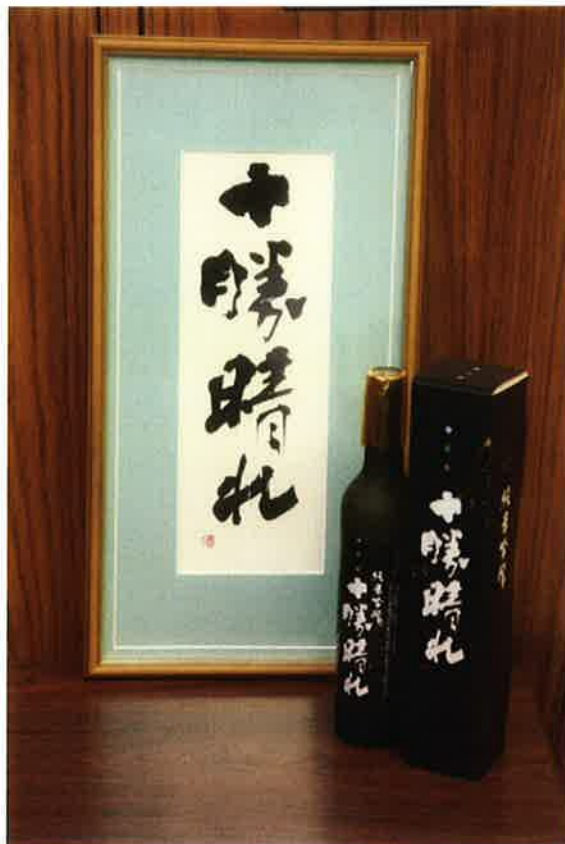 十勝晴れ
純米吟醸
十勝晴れ
十勝晴れ
純米吟醸